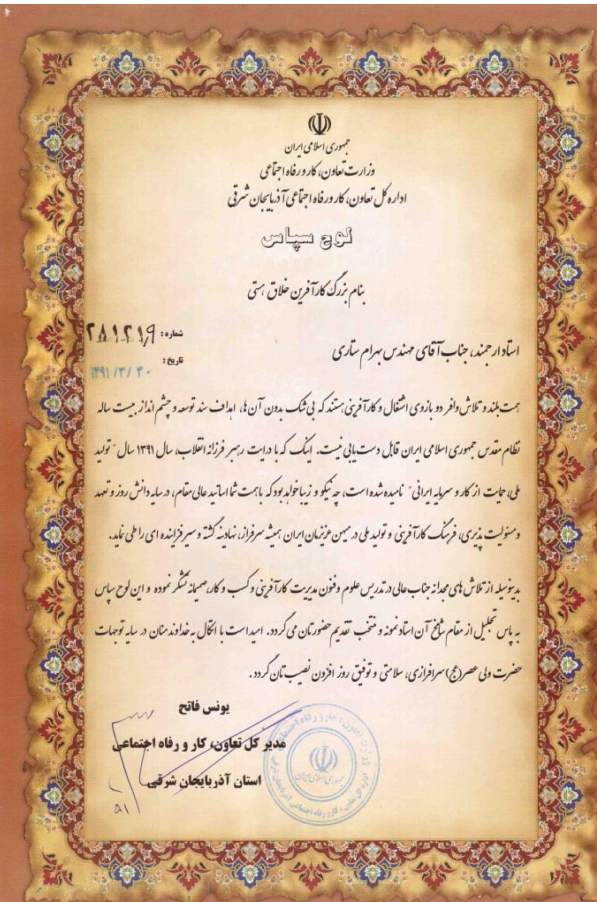 جمهوری اسلامی ایران
وزارت تعاون، کار و رفاه اجتماعی
اداره کل تعاون، کار و رفاه اجتماعی آذربایجان شرقی
لوح سپاس
بنام بزرگ کارآفرین خلاق هستی
شماره: ۲۸۱۲۱۹
استاد ارجمند، جناب آقای مهندس بهرام ستاری
تاریخ: ۱۳۹۱/۳/۳۰
همت بلند و تلاش وافر دو بازوی اشتغال و کارآفرینی هستند که بی شک بدون آن ها، اهداف سند توسعه و چشم انداز بیست ساله
نظام مقدس جمهوری اسلامی ایران قابل دست یابی نیست. اینک که با درایت رهبر فرزانه انقلاب، سال ۱۳۹۱ سال "تولید
ملی، حمایت از کار و سرمایه ایرانی" نامیده شده است، چه نیکو و زیبا خواهد بود که با همت شما اساتید عالی مقام، در سایه دانش روز و تعهد
و مسئولیت پذیری، فرهنگ کارآفرینی و تولید ملی در میهن عزیزمان ایران همیشه سرفراز، نهادینه گشته و سیر فزاینده ای را طی نماید.
بدینوسیله از تلاش های مجدانه جناب عالی در تدریس علوم و فنون مدیریت کارآفرینی و کسب و کار، صمیمانه تشکر نموده و این لوح سپاس
به پاس تجلیل از مقام شامخ آن استاد نمونه و منتخب تقدیم حضورتان می گردد. امید است با اتکال به خداوند منان در سایه توجهات
حضرت ولی عصر (عج) سرافرازی، سلامتی و توفیق روز افزون نصیب تان گردد.
یونس فاتح
مدیر کل تعاون، کار و رفاه اجتماعی
استان آذربایجان شرقی
جمهوری اسلامی ایران